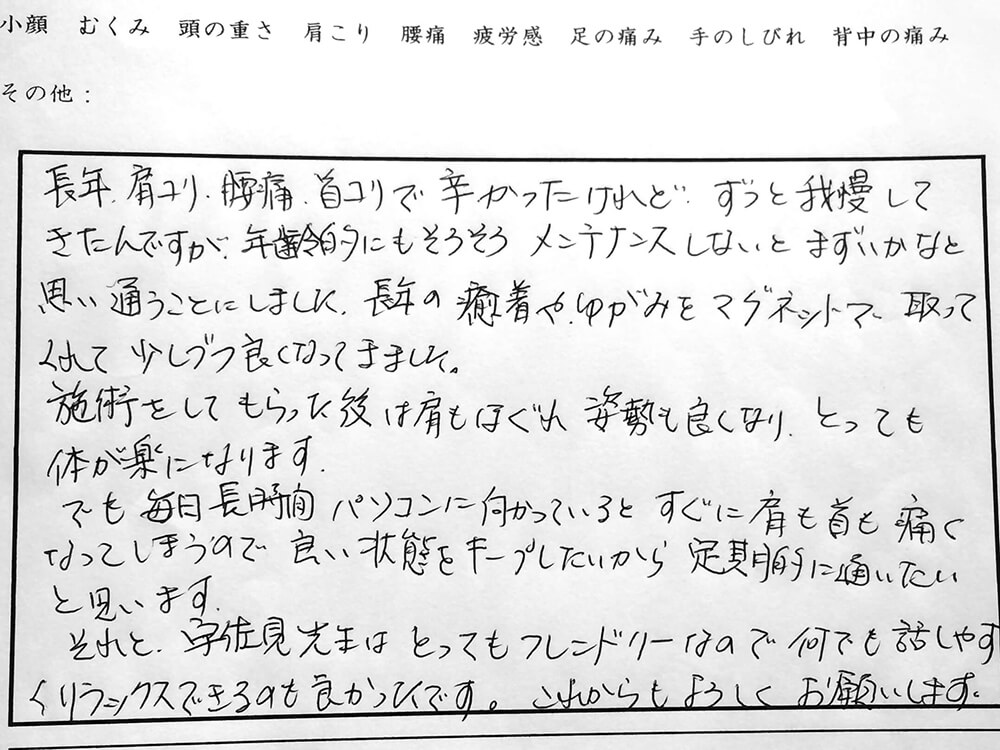 小顔 むくみ 頭の重さ 肩こり 腰痛 疲労感 足の痛み 手のしびれ 背中の痛み
その他：
長年、肩コリ、腰痛、首コリで辛かったけれど、ずっと我慢して
きたんですが、年齢的にもそろそろメンテナンスしないとまずいかなと
思い通うことにしました。長年の癒着や、ゆがみをマグネットマー取って
くれて少しづつ良くなってきました。
施術をしてもらった後は肩もほぐれ姿勢も良くなり、とっても
体が楽になります。
でも毎日長時間パソコンに向かっているとすぐに肩も首も痛く
なってしまうので良い状態をキープしたいから定期的に通いたい
と思います。
それと、宇佐見先生はとってもフレンドリーなので何でも話しやす
くリラックスできるのも良かったです。これからもよろしくお願いします。